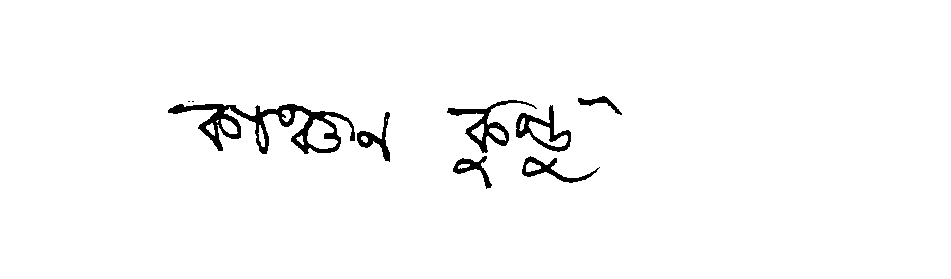 কাঞ্চন কুন্ডু